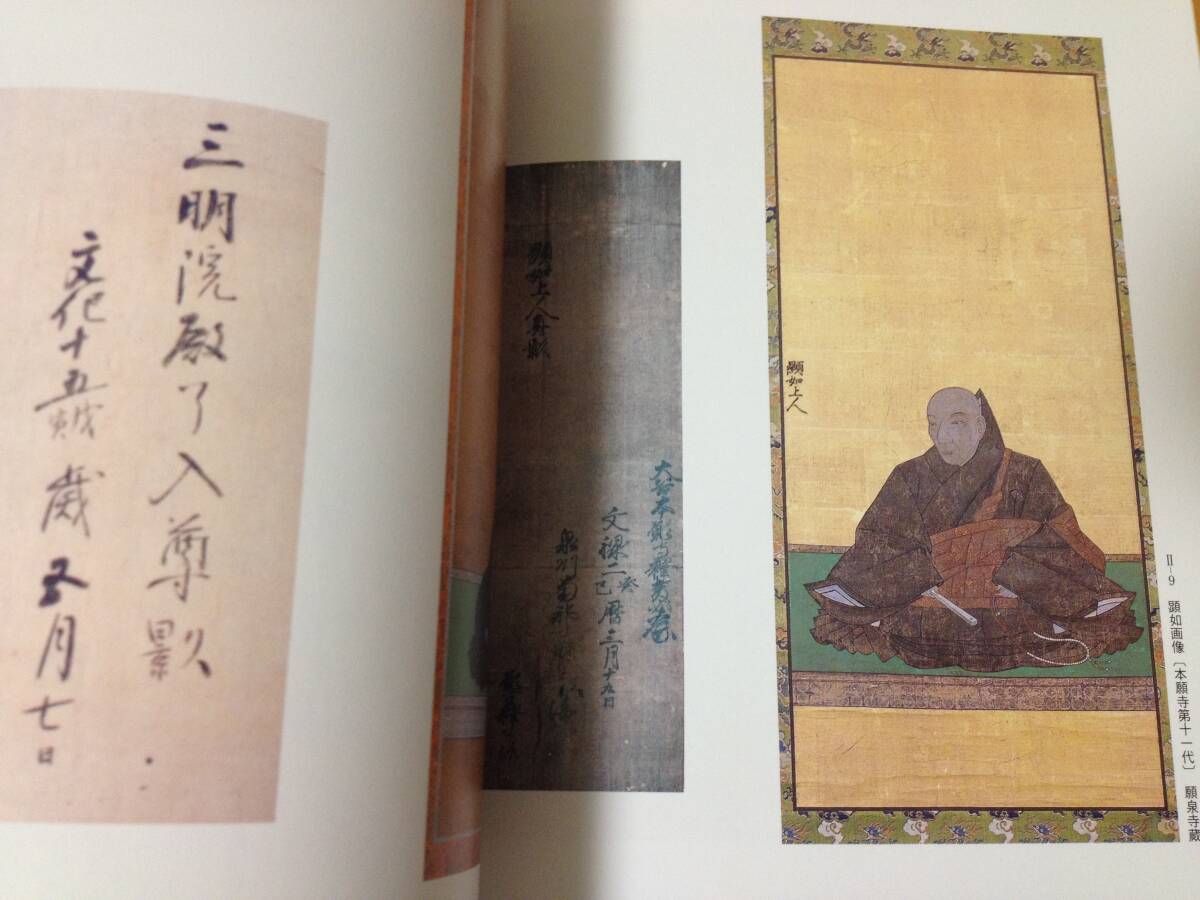 II-9　顕如画像〔本願寺第十一代〕　願泉寺蔵
顕如上人
顕如上人真影
文禄二癸巳暦三月十九日
三明院殿了入尊影
文化十五戊寅歳五月七日